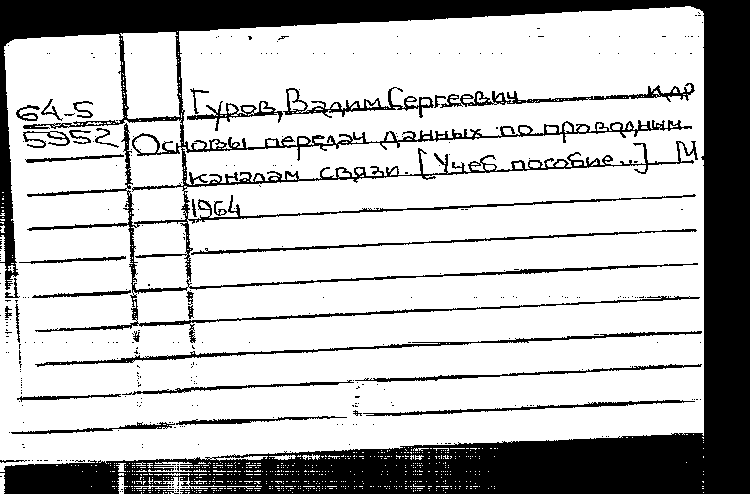 64-5
5952
Гуров, Вадим Сергеевич и др
Основы передач данных по проводным
каналам связи. [Учеб. пособие...] М.
1964